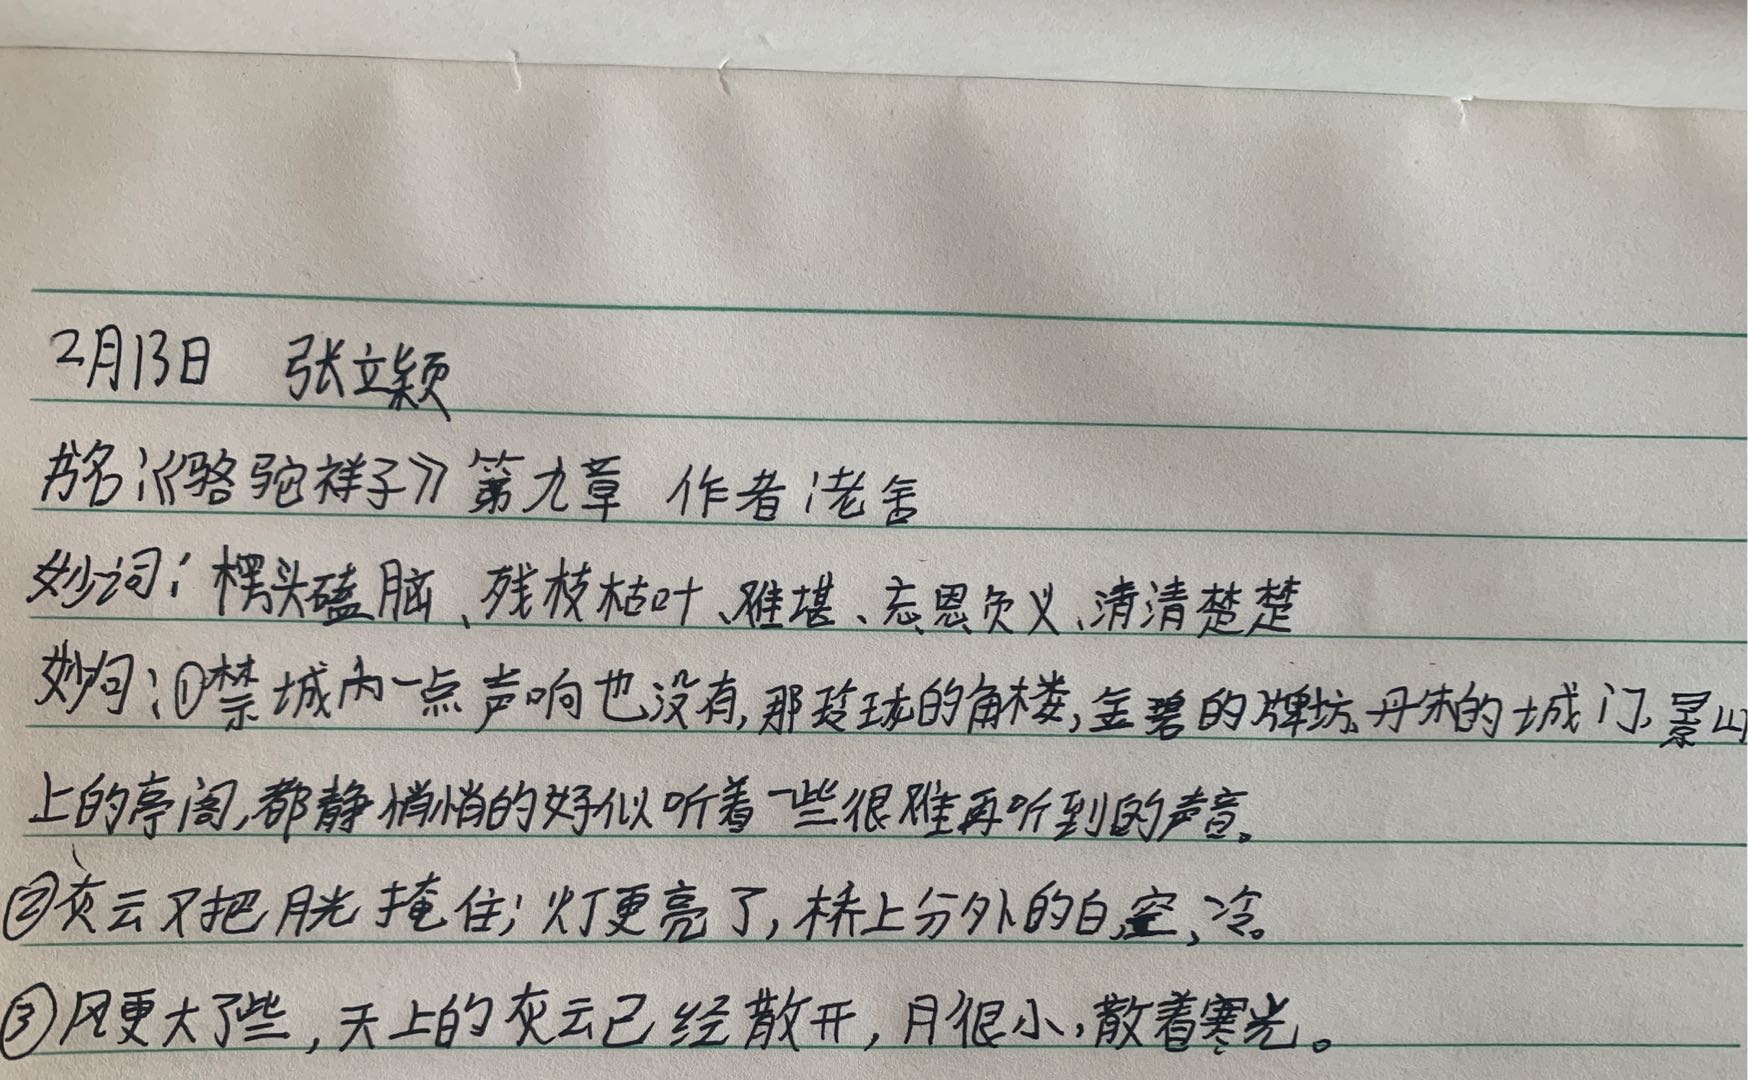 2月13日 张立颖
书名:《骆驼祥子》第九章 作者:老舍
妙词:楞头磕脑、残枝枯叶、难堪、忘恩负义、清清楚楚
妙句:①禁城内一点声响也没有,那玲珑的角楼,金碧的牌坊、丹朱的城门、景山
上的亭阁,都静悄悄的好似听着一些很难再听到的声音。
②灰云又把月光掩住;灯更亮了,桥上分外的白,空,冷。
③风更大了些,天上的灰云已经散开,月很小,散着寒光。